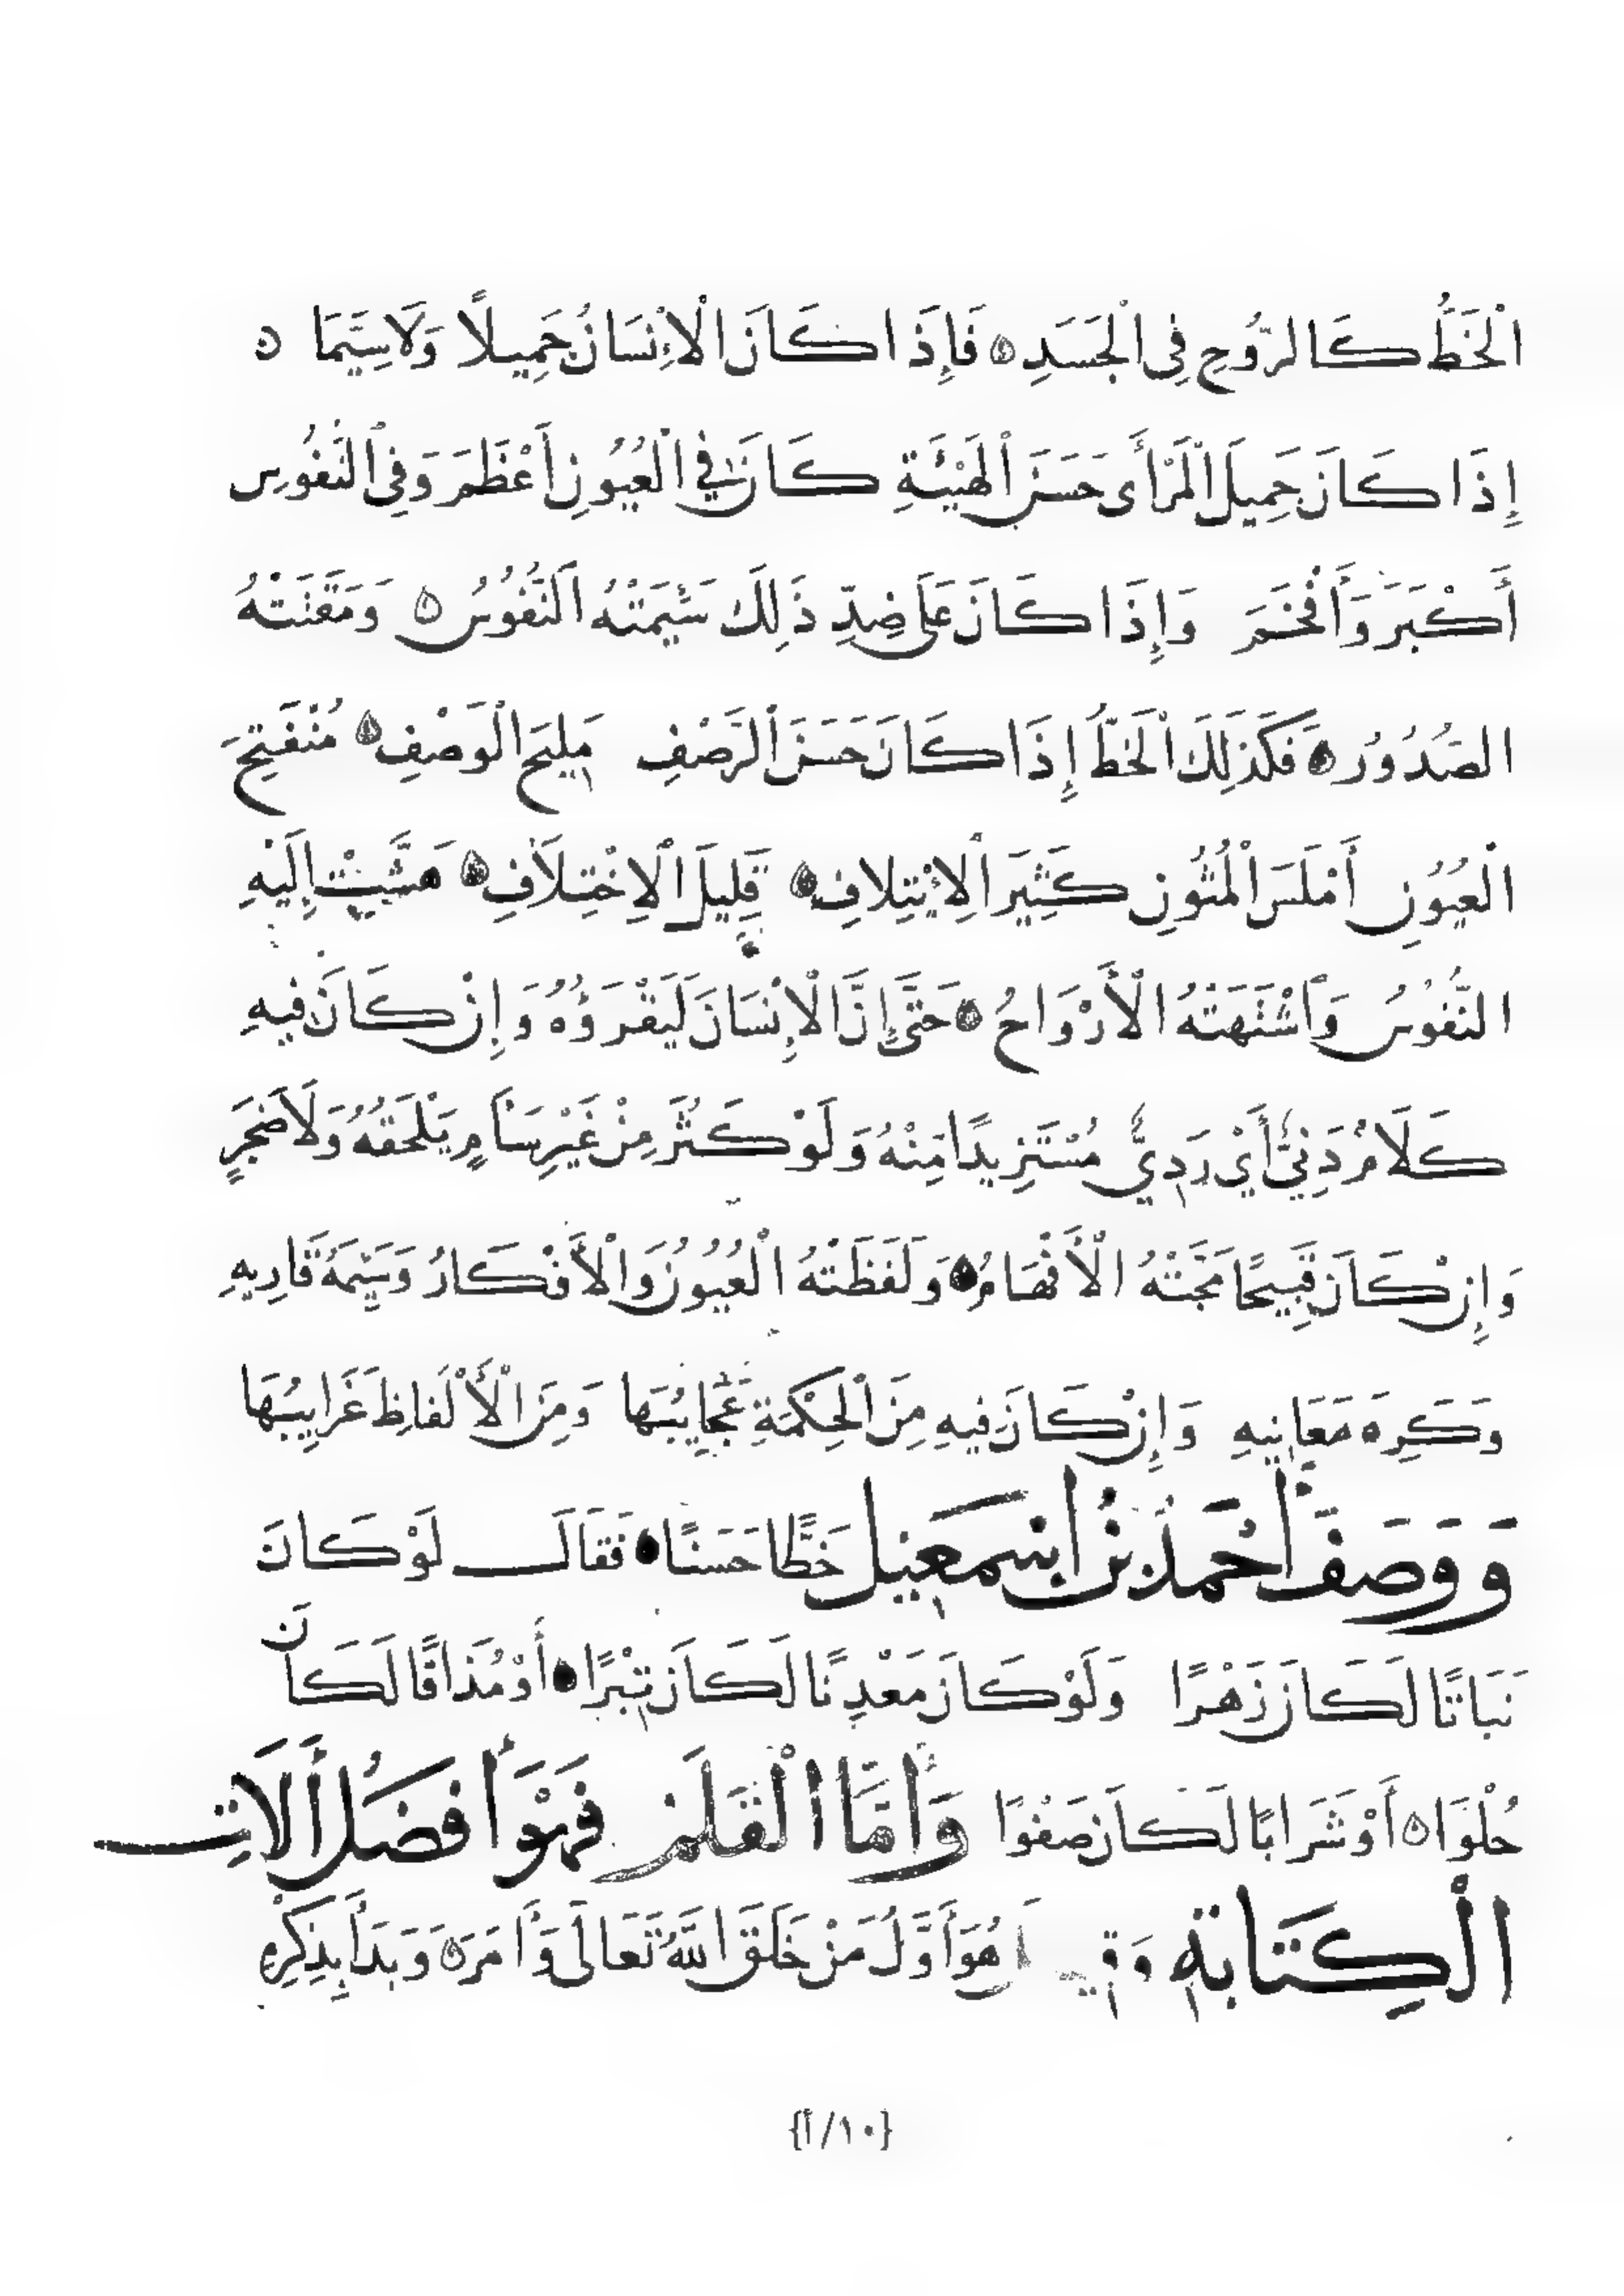 الْخَطُّ كَالرُّوحِ فِى الْجَسَدِ ۝ فَإِذَا كَانَ الْإِنْسَانُ جَمِيلًا وَلَا سِيَّمَا ۝
إِذَا كَانَ جَمِيلَ الْمَرْأَى حَسَنَ الْهَيْئَةِ كَانَ فِي الْعُيُونِ أَعْظَمَ وَفِى النُّفُوسِ
أَكْبَرَ وَأَفْخَمَ وَإِذَا كَانَ عَلَى ضِدِّ ذَلِكَ سَئِمَتْهُ النُّفُوسُ ۝ وَمَقَتَتْهُ
الصُّدُورُ ۝ فَكَذَلِكَ الْخَطُّ إِذَا كَانَ حَسَنَ الرَّصْفِ مَلِيحَ الْوَصْفِ ۝ مُنْفَتِحَ
الْعُيُونِ أَمْلَسَ الْمُتُونِ كَثِيرَ الْاِئْتِلَافِ ۝ قَلِيلَ الْاِخْتِلَافِ ۝ هَشَّتْ إِلَيْهِ
النُّفُوسُ وَاشْتَهَتْهُ الْأَرْوَاحُ ۝ حَتَّى إِنَّ الْإِنْسَانَ لَيَقْرَؤُهُ وَإِنْ كَانَ فِيهِ
كَلَامٌ دَنِيٌّ أَيْ رَدِيٌّ مُسْتَزِيدًا مِنْهُ وَلَوْ كَثُرَ مِنْ غَيْرِ سَأَمٍ يَلْحَقُهُ وَلَا ضَجَرٍ
وَإِنْ كَانَ قَبِيحًا مَجَّتْهُ الْأَفْهَامُ ۝ وَلَفَظَتْهُ الْعُيُونُ وَالْأَفْكَارُ وَسَئِمَهُ قَارِيهِ
وَكَرِهَ مَعَانِيهِ وَإِنْ كَانَ فِيهِ مِنَ الْحِكْمَةِ عَجَايِبُهَا وَمِنَ الْأَلْفَاظِ غَرَايِبُهَا
وَوَصَفَ أَحْمَدُ بْنُ إِسْمَعِيلَ خَطًّا حَسَنًا ۝ فَقَالَ لَوْ كَانَ
نَبَاتًا لَكَانَ زَهْرًا وَلَوْ كَانَ مَعْدِنًا لَكَانَ تِبْرًا ۝ أَوْ مُذَاقًا لَكَانَ
حُلْوًا ۝ أَوْ شَرَابًا لَكَانَ صَفْوًا وَأَمَّا الْقَلَمُ فَهُوَ أَفْضَلُ أَلَاتِ
الْكِتَابَةِ هُوَ أَوَّلُ مَنْ خَلَقَ اللَّهُ تَعَالَى وَأَمَرَهُ وَبَدَأَ بِذِكْرِهِ
{١٠/أ}